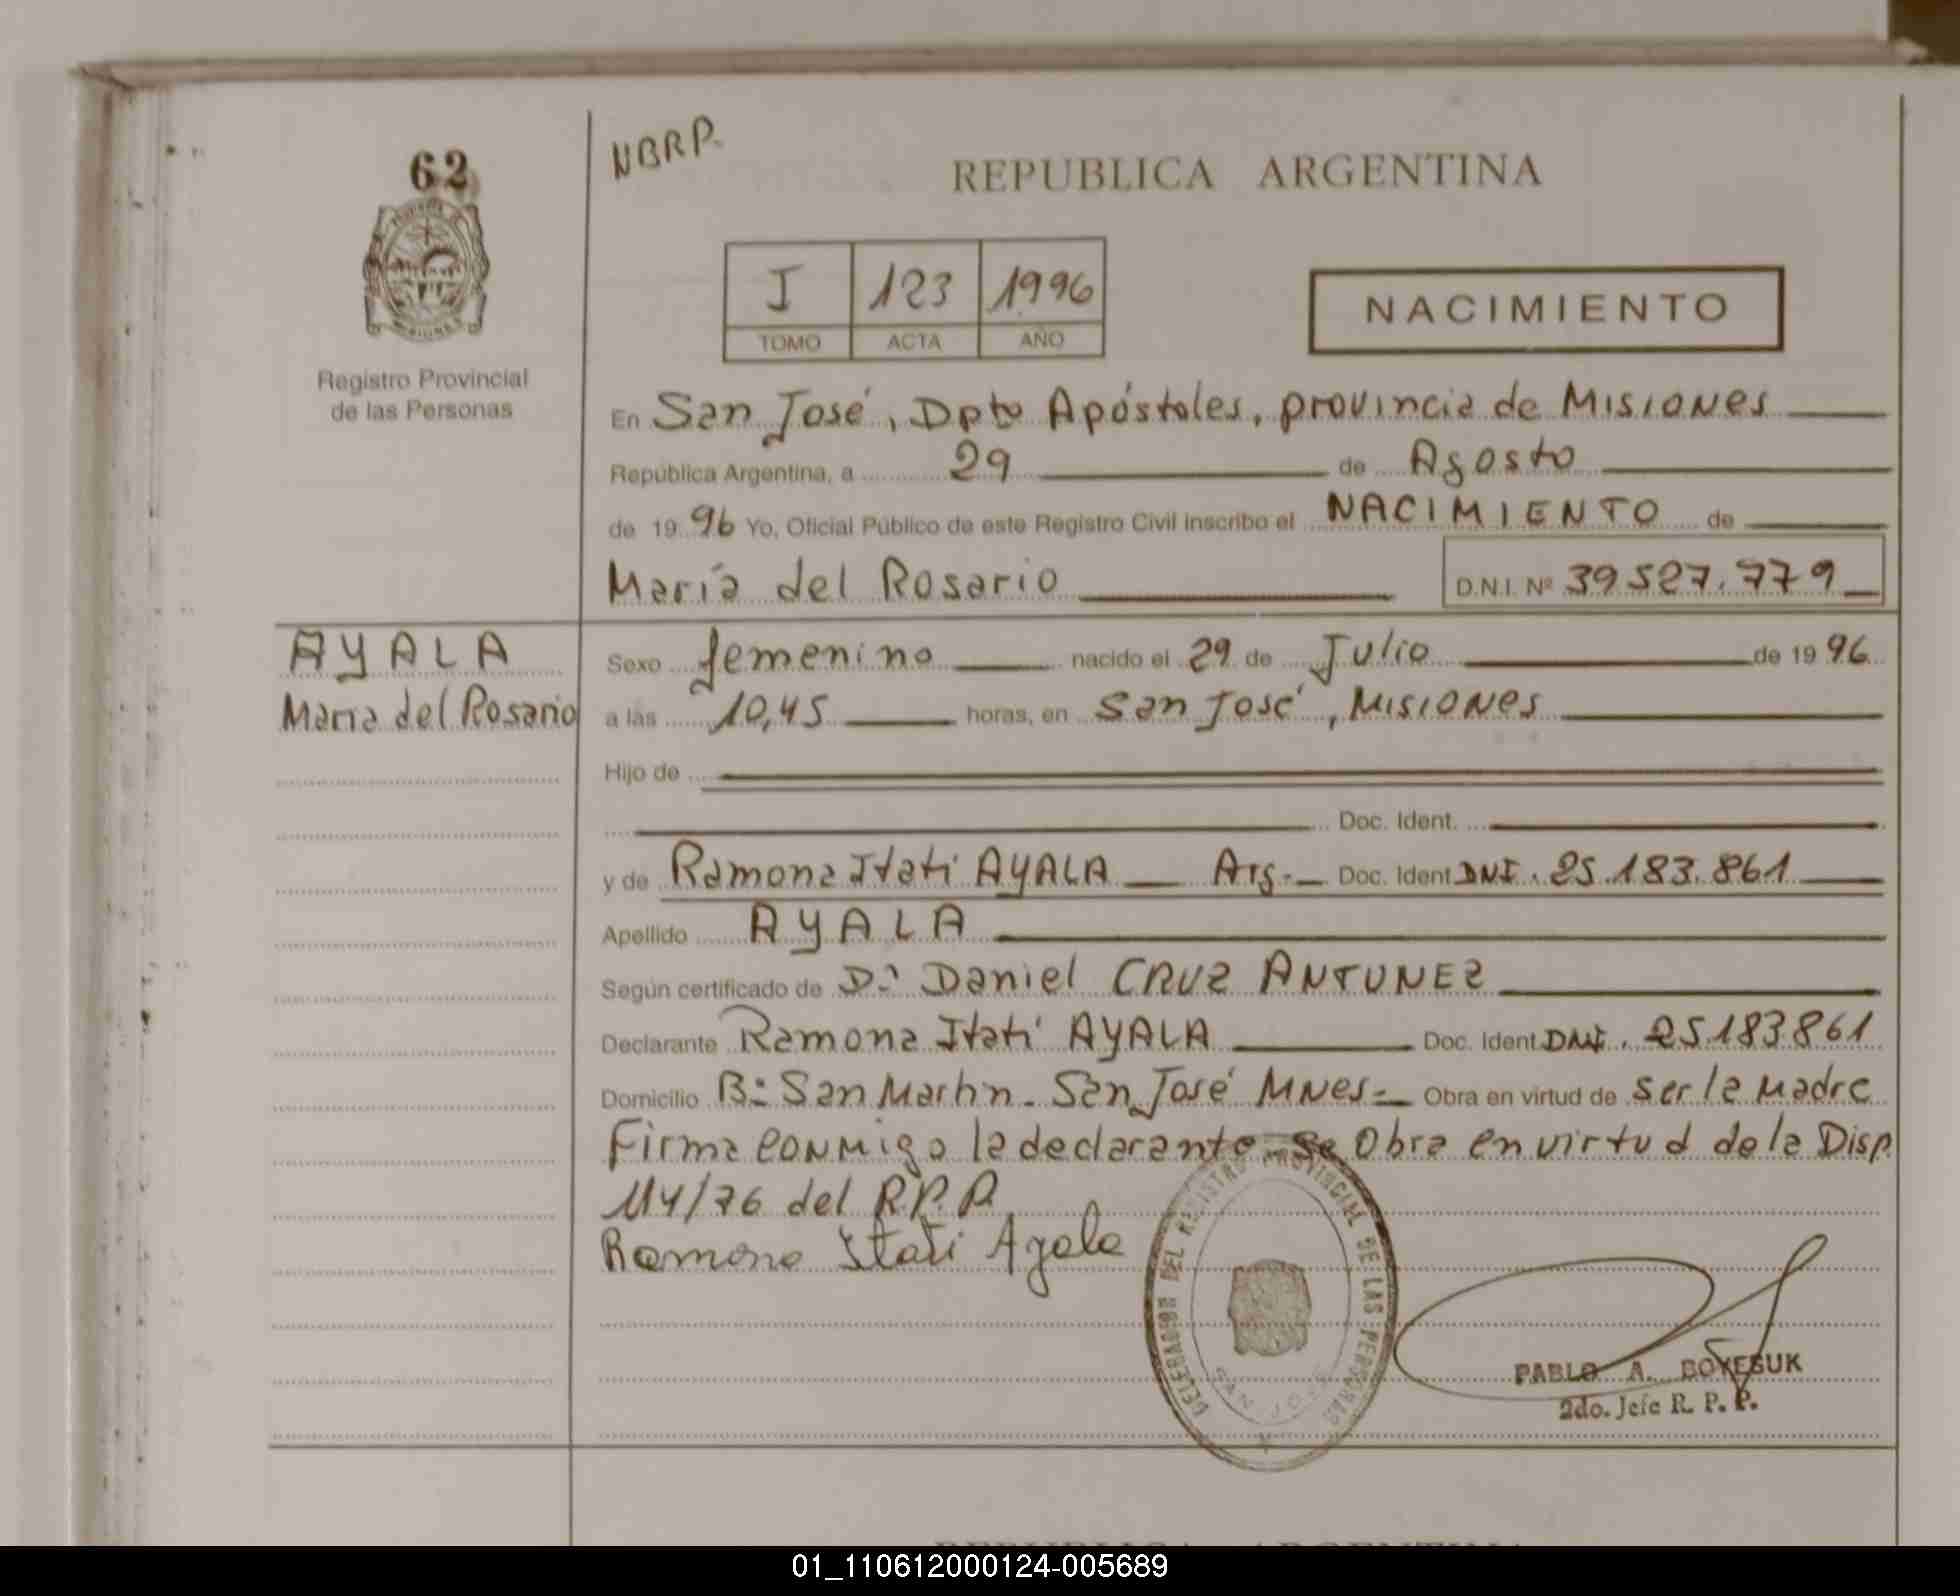 62
NBRP.
REPUBLICA ARGENTINA
I 123 1996
TOMO ACTA AÑO
NACIMIENTO
Registro Provincial
de las Personas
En San José, Dpto Apóstoles, provincia de Misiones
República Argentina, a 29 de Agosto
de 19 96 Yo, Oficial Público de este Registro Civil inscribo el NACIMIENTO de
María del Rosario D.N.I. Nº 39527.779
AYALA
María del Rosario
Sexo femenino nacido el 29 de Julio de 19 96
a las 10,45 horas, en San José, Misiones
Hijo de
Doc. Ident.
y de Ramona Itatí AYALA Arg.- Doc. Ident DNI. 25.183.861
Apellido AYALA
Según certificado de Dr. Daniel CRUZ ANTUNEZ
Declarante Ramona Itatí AYALA Doc. Ident DNI. 25.183.861
Domicilio Bº San Martin - San José Mnes= Obra en virtud de ser la Madre
Firma conmigo la declarante - Se Obra en virtud de la Disp.
114/76 del R.P.P.
Ramona Itati Ayala
DELEGACION DEL REGISTRO PROVINCIAL DE LAS PERSONAS
SAN JOSE
PABLO A. BOYESUK
2do. Jefe R. P. P.
REPUBLICA ARGENTINA
01_110612000124-005689